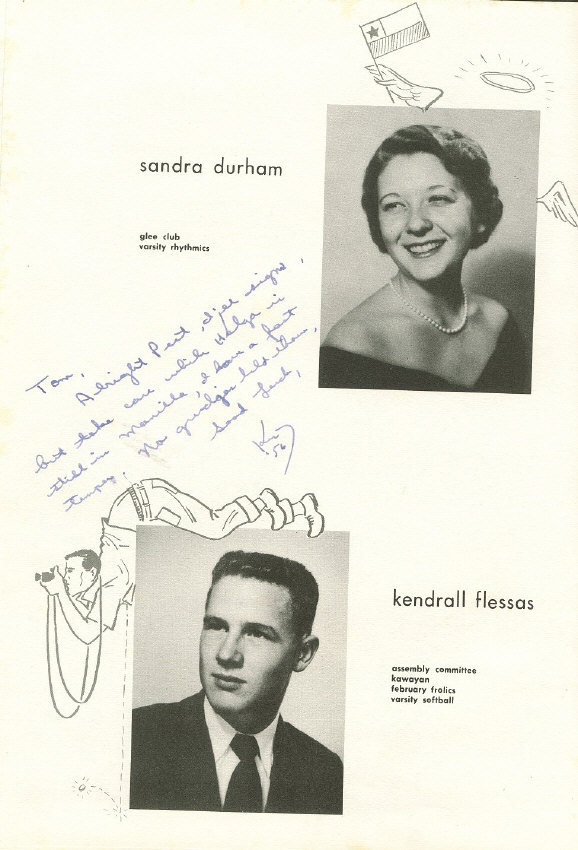 sandra durham
glee club
varsity rhythmics
Tom,
Alright Pest, I'll sign,
but take care while Helga in
still in Manilla, I have a fast
temper, No grudges held tho,
Good Luck,
Ken
56
kendrall flessas
assembly committee
kawayan
february frolics
varsity softball